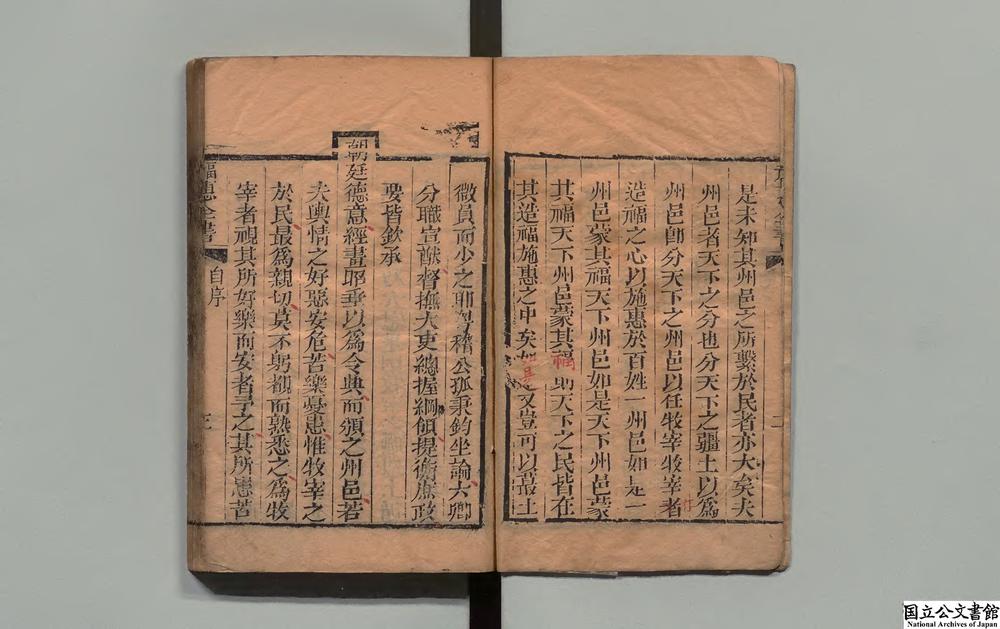 是未知其州邑之所繫於民者亦大矣夫
州邑者天下之分也分天下之疆土以為
州邑卽分天下之州邑以任牧宰牧宰者
造福之心以施惠於百姓一州邑如是一
州邑蒙其福天下州邑如是天下州邑蒙
其福天下州邑蒙其福則天下之民皆在
其造福施惠之中矣如是又豈可以蕞土
二
微員而少之耶粤稽公孤秉鈞坐論六卿
分職宣猷督撫大吏總握綱領提衡庶政
要皆欽承
朝廷德意經畫昭垂以為令典而頒之州邑若
夫輿情之好惡安危苦樂憂患惟牧宰之
於民最為親切莫不躬覩而熟悉之為牧
宰者視其所好樂而安者予之其所患苦
福惠全書
自序
三
国立公文書館
National Archives of Japan